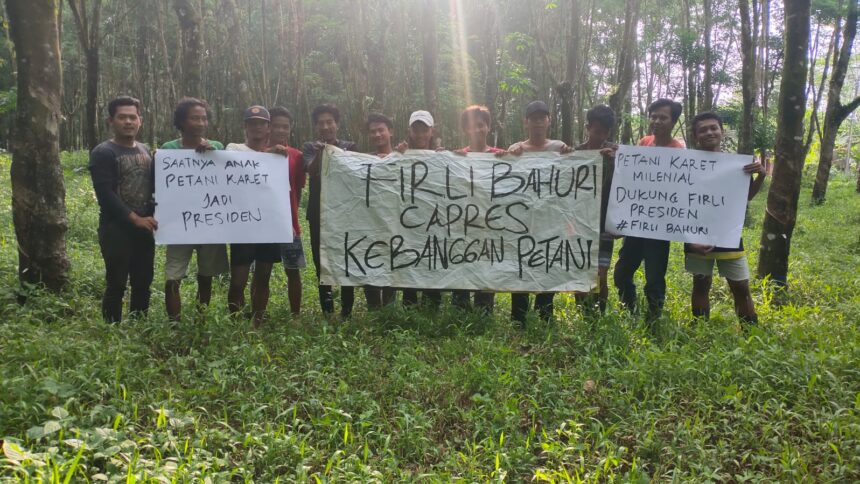 SAATNYA ANAK
PETANI KARET
JADI
PRESIDEN
FIRLI BAHURI
CAPRES
KEBANGGAN PETANI
PETANI KARET
MILENIAL
DUKUNG FIRLI
PRESIDEN
#FIRLI BAHURI